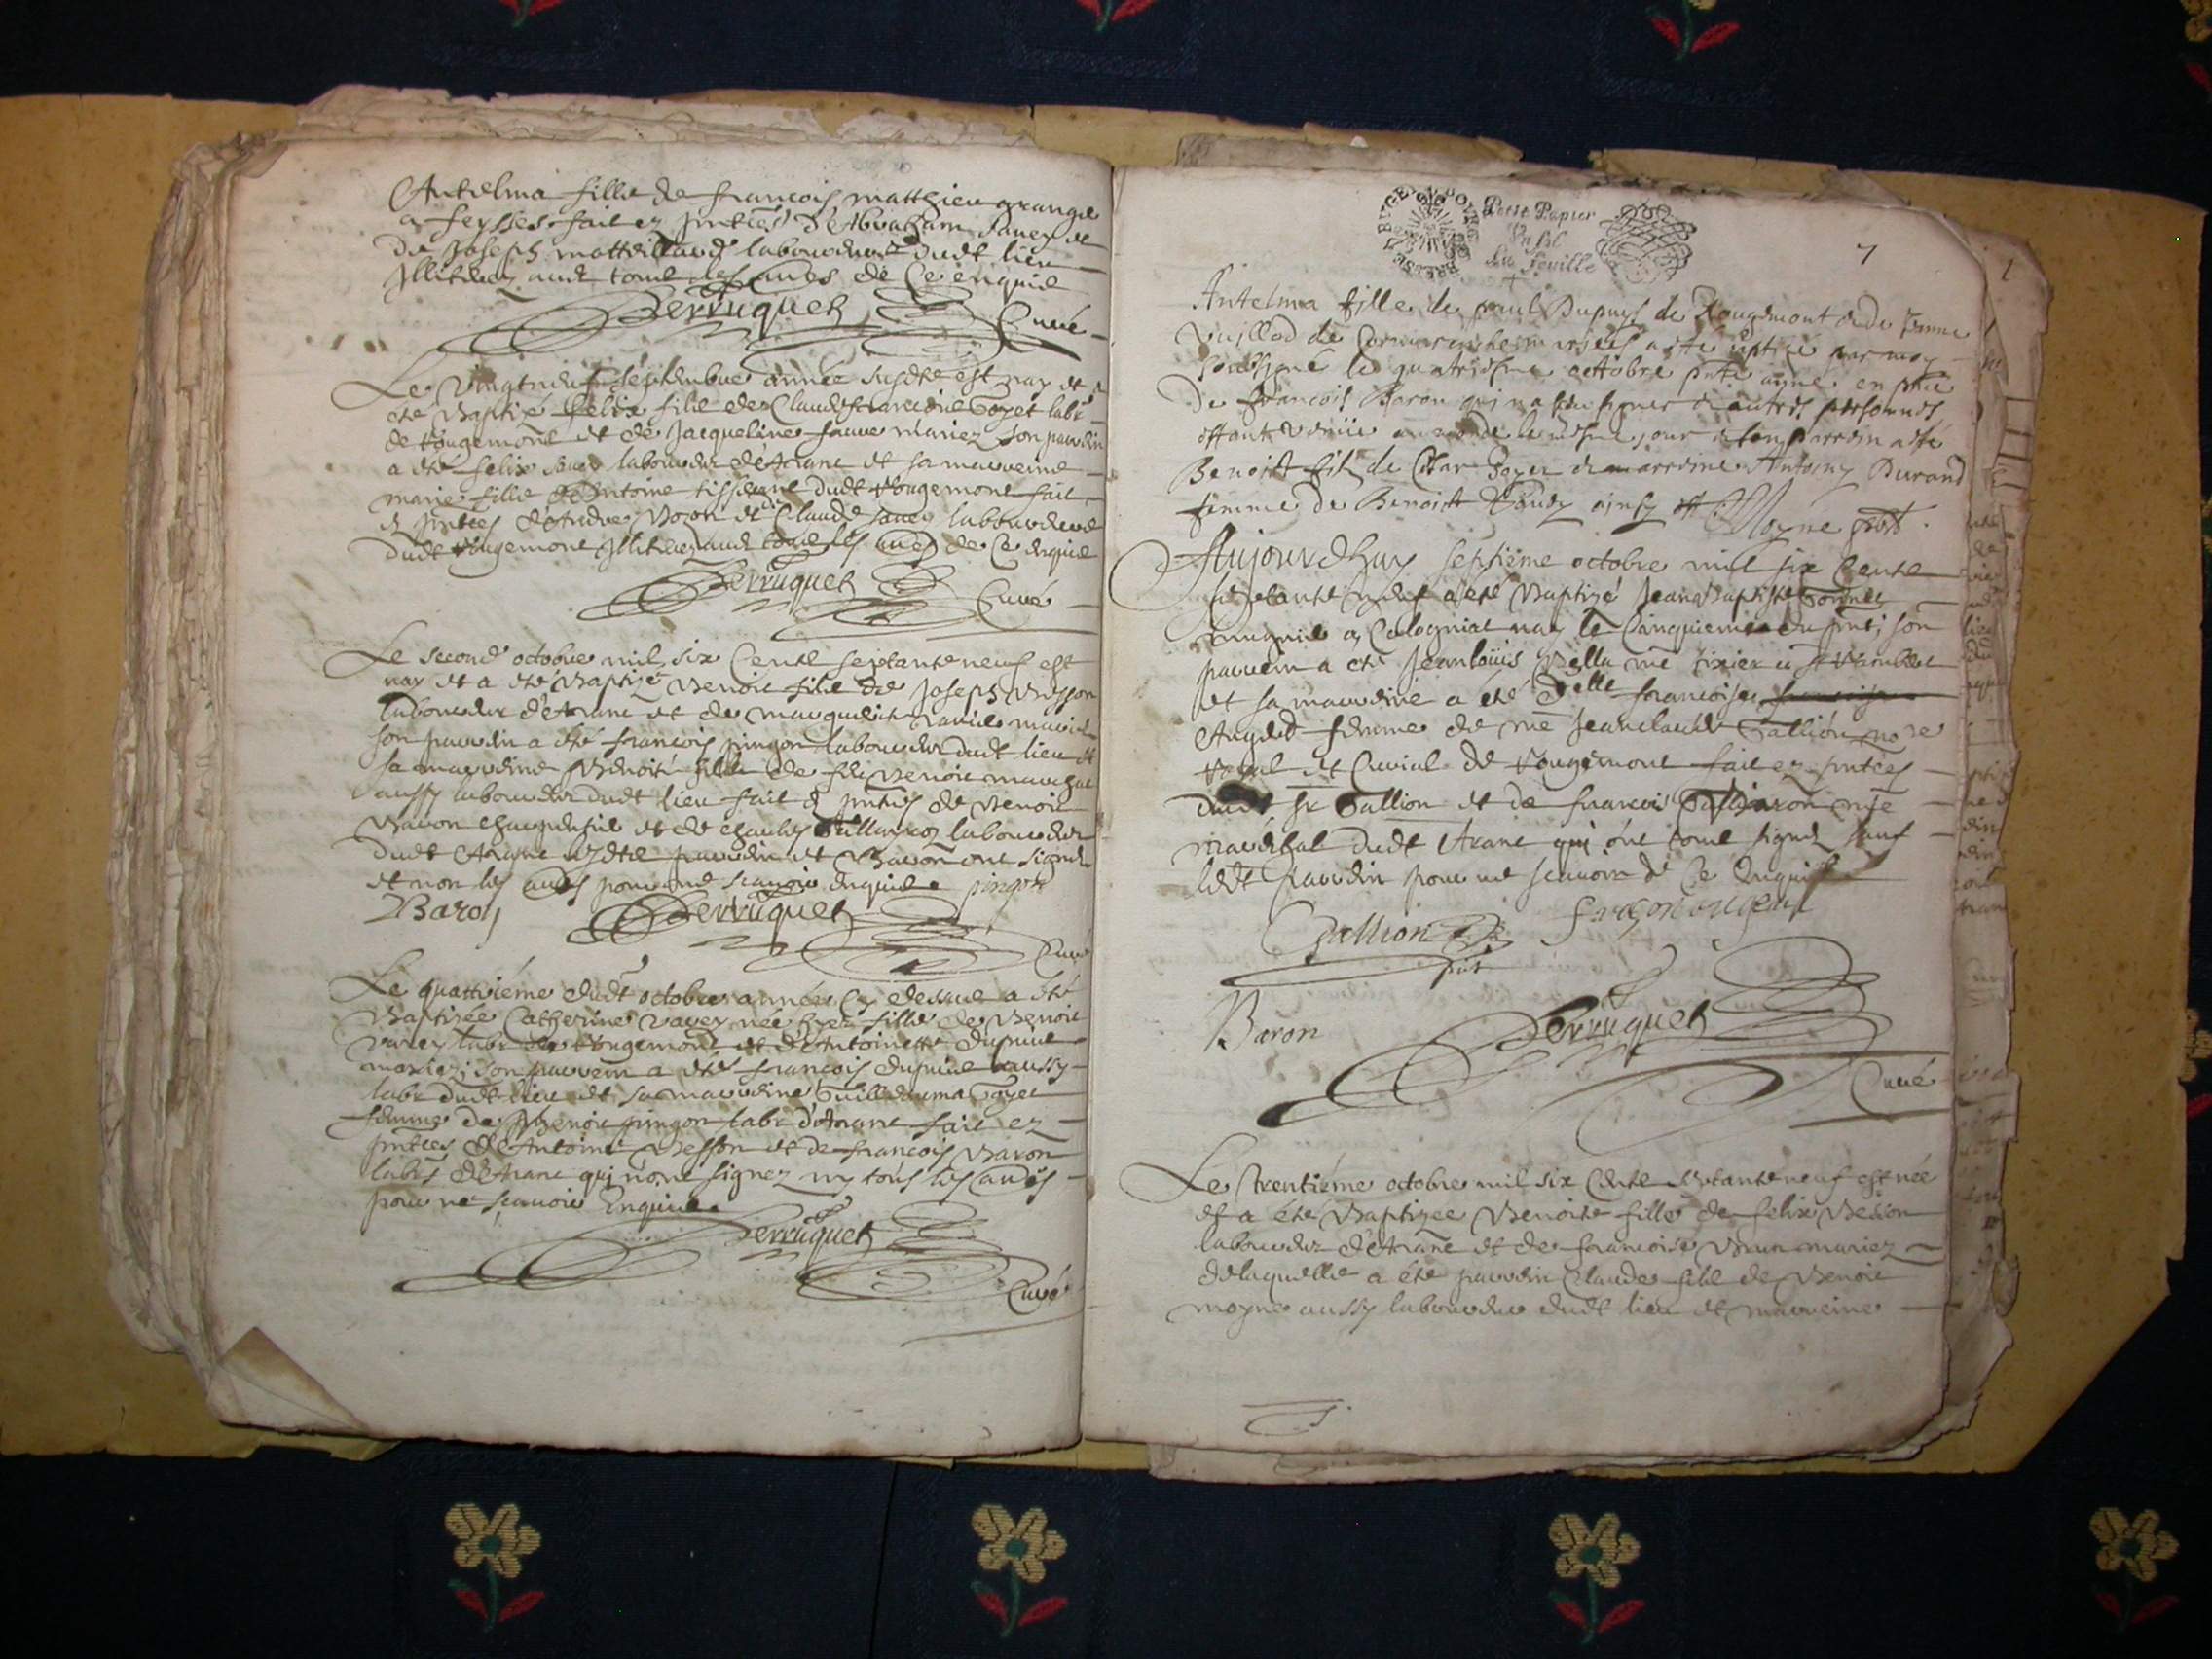 Antelma fille de francois matthieu grange
a feysses fait ez pntces d'Abraham Savey et
de Joseph labourdeurs dudt lieu
Illiterez audt tout les avres de ce enquis
Perruquet Curé
Le vingtneuf septembre année susdte est nay et a
eté Baptizé felix fils de Claude francois Goyet labr
de Rougemont et de Jacqueline favre mariez son parrein
a eté felix labourdeur d'Arane et sa marreine
marie fille d'Antoine tisserand dudt Rougemont fait
ez pntces d'Andre Boron et Claude Savey labourdeurs
dudt Rougemont Illiterez audt tout les avres de ce enquis
Perruquet Curé
Le second octobre mil six cents septante neuf est
nay et a eté Baptizé Benoit fils de Joseph Besson
labourdeur d'Arane et de marguerite mariez
son parrein a été francois pingon labourdeur dudt lieu et
sa marreine Benoite fille de feu Benoit
aussy labourdeur dudt lieu fait ez pntces de Benoit
Baron et de Charles labourdeur
dudt Arane lesdts parrein et Baron ont signez
et non les avres pour ne scavoir enquis pingon
Baron Perruquet Curé
Le quattriéme dudt octobre année cy dessus a été
Baptizée Catherine Savey née hyer fille de Benoit
Savey labr de Rougemont et d'Antoinette dupuis
mariez; son parrein a eté francois dupuis aussy
labr dudt lieu et sa marreine Guillauma Goyet
femme de Benoit pingon labr d'Arane fait ez
pntces d'Antoine Besson et de francois Baron
labrs d'Arane qui n'ont signez ny tous les avres
pour ne scavoir Enquis
Perruquet Curé
Petit Papier
Un sol
La Feuille
7
Antelma fille de paul Dupuys de Rougemont et de Janne
Vuillod de Cormaranche mariés a este baptizé par moy
soussigné le quatriesme octobre pnte année en pnce
de francois Baron qui n'a sceu signer et autres personnes
estant venüe au monde le mesme jour et son parrein a esté
Benoist fils de Char Goyet et marreine Antoiny Durand
femme de Benoist ainsy est Moyne pbre
Aujourdhuy septiéme octobre mil six cents
septante neuf a eté Baptizé Jean Baptiste
a Calogniat nay le cinquieme du pnt; son
parrein a eté Jean loüis me tixier a St Rambert
et sa marreine a été Delle francoise
femme de me Jeanclaude Gallion nore
royal et curial de Rougemont fait ez pntces
dudt sr Gallion et de francois Baron me
marechal dudt Arane qui ont tout signez sauf
ledt parrein pour ne scavoir de ce Enquis
Gallion
pnt
Baron Perruquet
Curé
Le trentiéme octobre mil six cents septante neuf est née
et a éte Baptizee Benoite fille de felix Besson
labourdeur d'Arane et de francoise Brun mariez
de laquelle a éte parrein Claude fils de Benoit
moyne aussy labourdeur dudt lieu et marreine